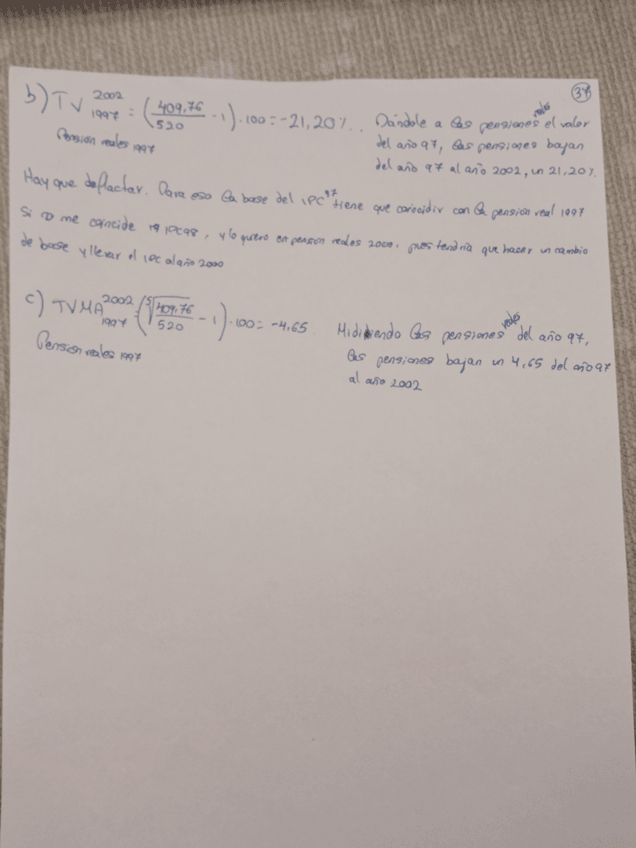 37
b) TV 2002 1997 = (409,76/520 - 1) · 100 = -21,20%. Dándole a las pensiones reales el valor
Pension reales 1997 del año 97, las pensiones bajan
del año 97 al año 2002, un 21,20%.
Hay que deflactar. Para eso la base del IPC 97 tiene que coincidir con la pension real 1997
Si no me coincide IPC98, y lo quiero en pension reales 2000, pues tendría que hacer un cambio
de base y llevar el IPC al año 2000
c) TVMA 2002 1997 = (⁵√409,76/520 - 1) · 100 = -4,65 Midiendo las pensiones reales del año 97,
Pension reales 1997 las pensiones bajan un 4,65 del año 97
al año 2002